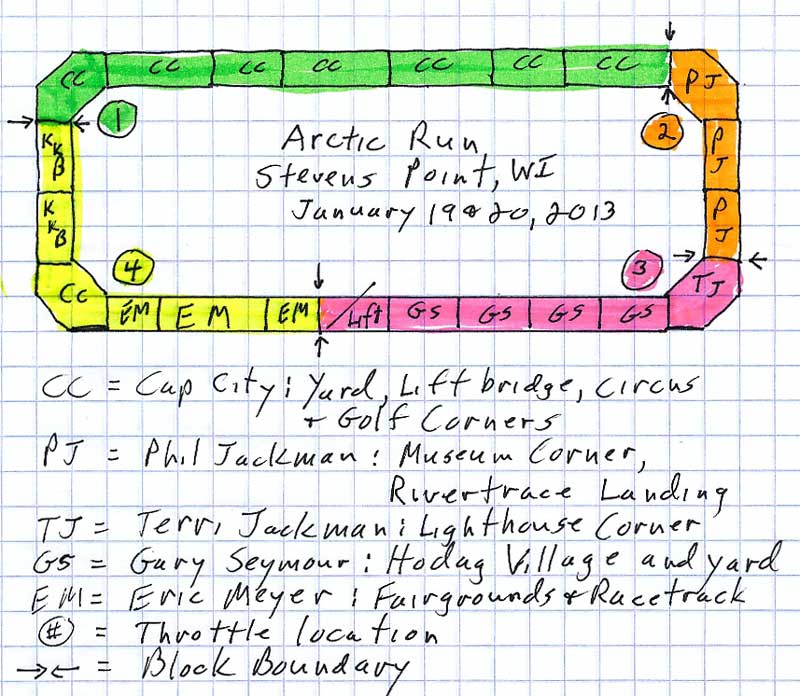 CC CC CC CC CC CC CC PJ
1
2
KKB
PJ
Arctic Run
Stevens Point, WI
January 19 & 20, 2013
KKB
PJ
4
3
CC
TJ
EM EM EM Lift GS GS GS GS
CC = Cap City: Yard, Liftbridge, Circus
+ Golf Corners
PJ = Phil Jackman: Museum Corner,
Rivertrace Landing
TJ = Terri Jackman: Lighthouse Corner
GS = Gary Seymour: Hodag Village and yard
EM = Eric Meyer: Fairgrounds & Racetrack
# = Throttle location
→← = Block Boundary